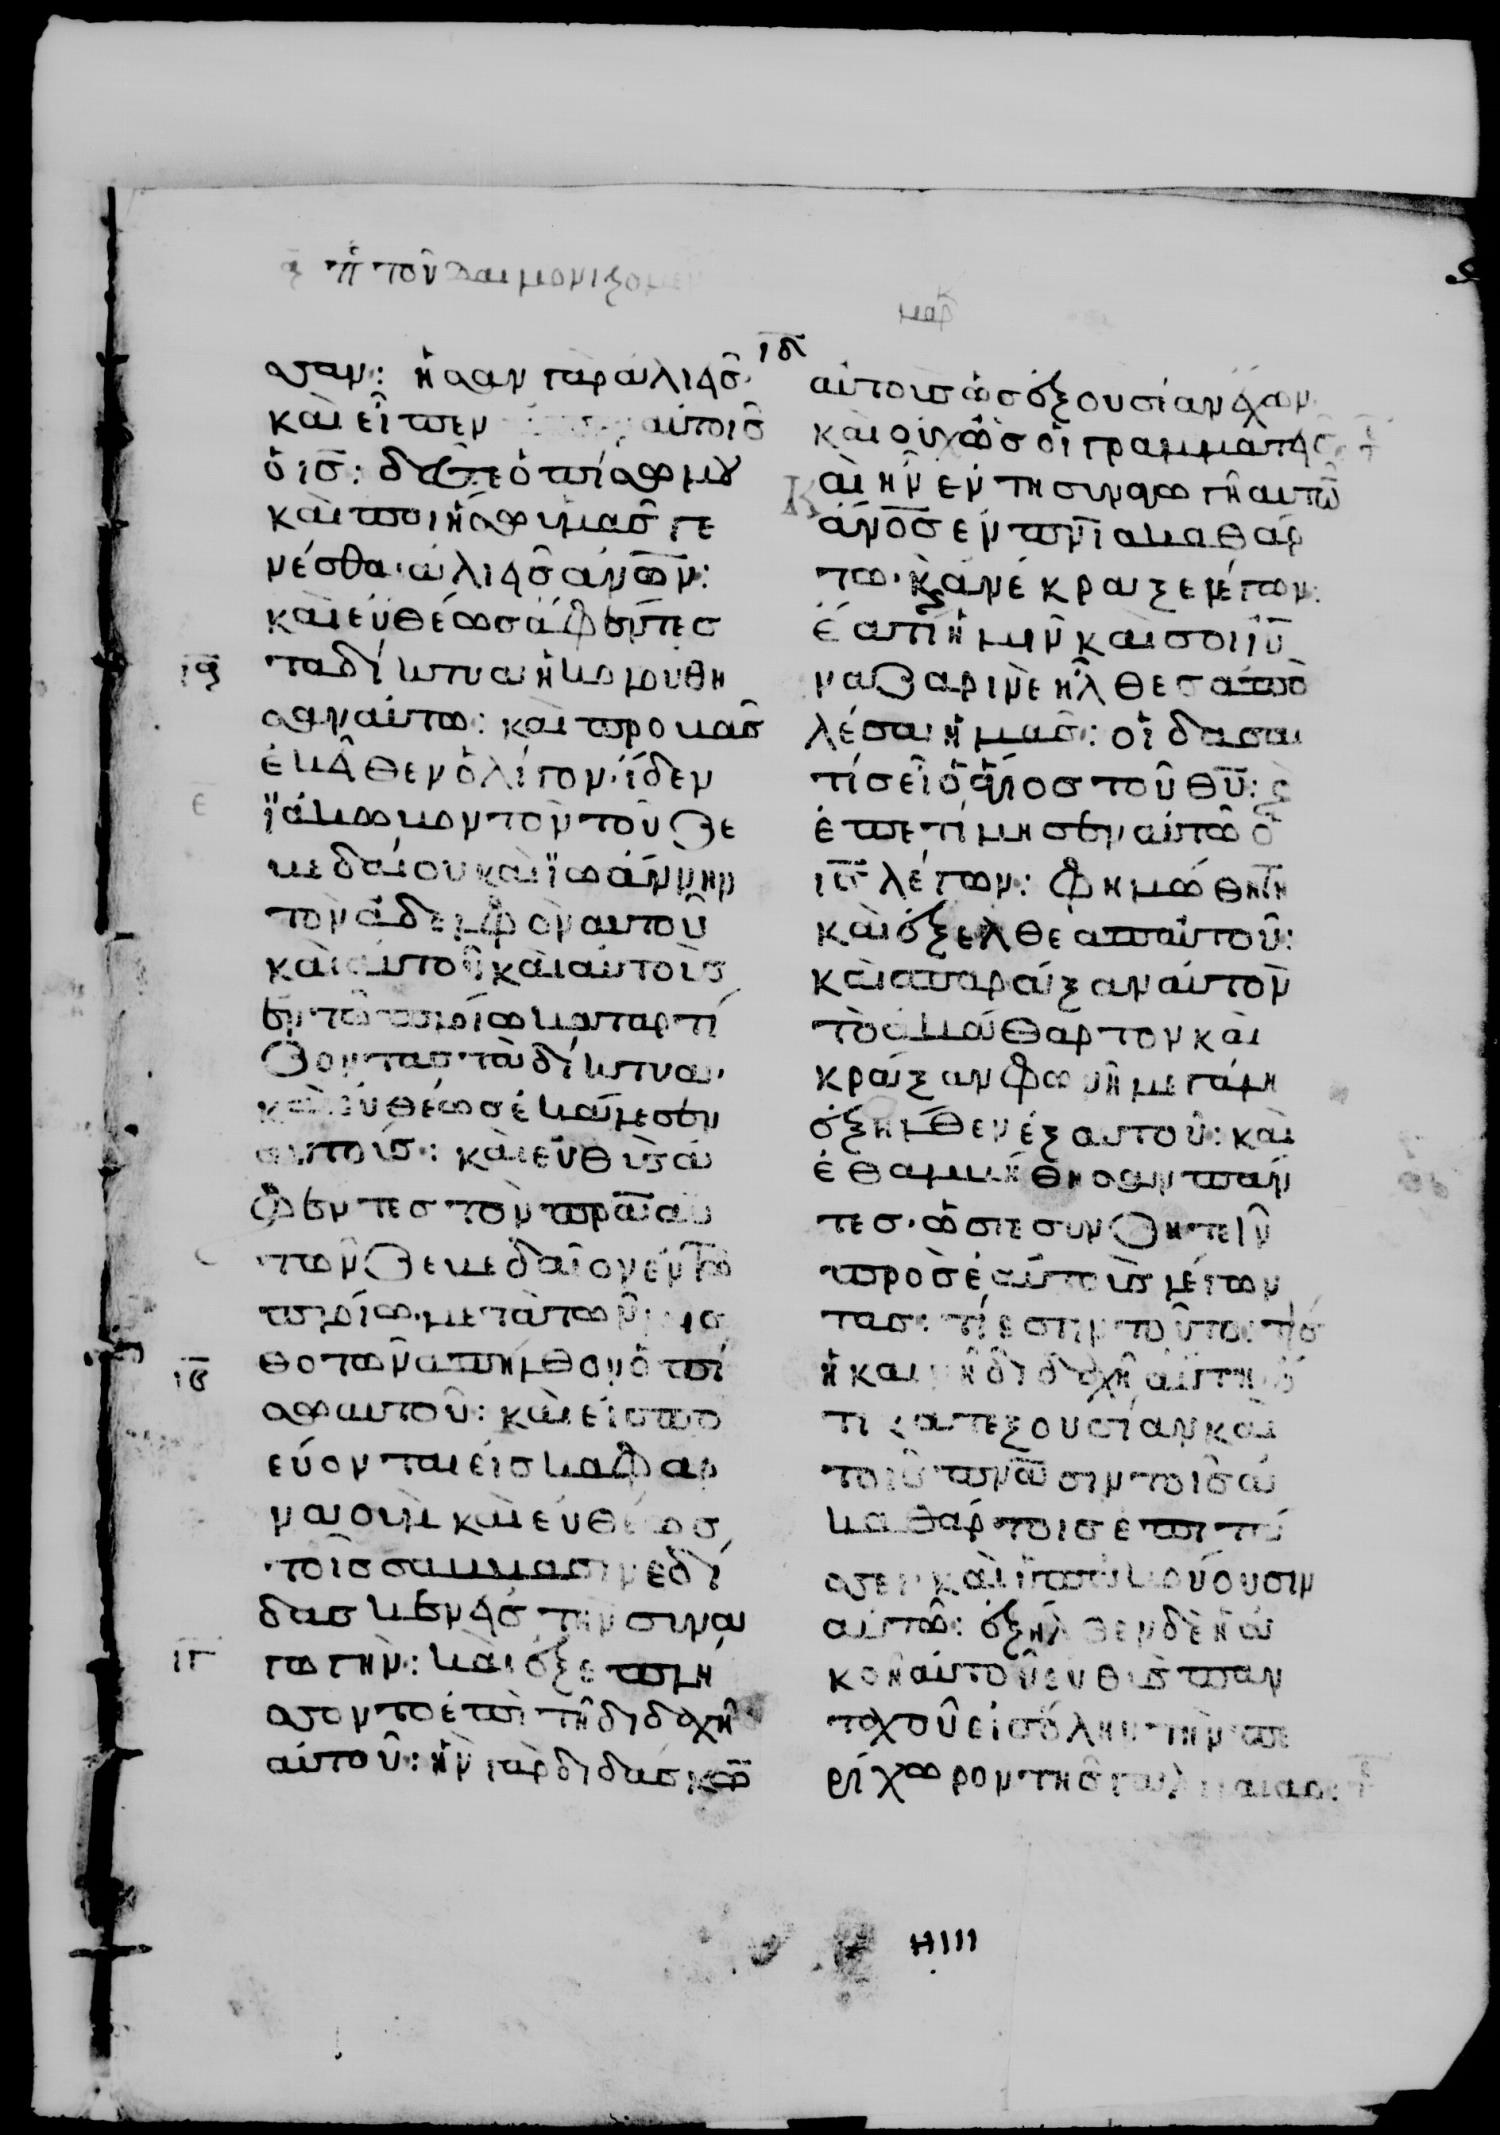 ᾱ π τοῦ δαιμονιζομέν
μαρ
σσαν: ἦσαν γὰρ ἁλιεῖς·
καὶ εἶπεν αὐτοῖς
ὁ ι̅ς̅: δεῦτε ὀπίσω μου
καὶ ποιήσω ὑμᾶς γε
νέσθαι ἁλιεῖς ἀν̅ω̅ν̅:
καὶ εὐθέως ἀφέντες
ι̅α̅ τὰ δίκτυα ἠκολούθη
σαν αὐτῶ: καὶ προβὰς
ἐκεῖθεν ὀλίγον· ἴδεν
ϊάκωβον τὸν τοῦ ζε
βεδαίου καὶ ϊωάννην
τὸν ἀδελφὸν αὐτοῦ
καὶ αὐτοὺς
ἐν τῶ πλοίω καταρτί
ζοντας τὰ δίκτυα·
καὶ εὐθέως ἐκάλεσεν
αὐτούς: καὶ εὐθὺς ἀ
φέντες τὸν π̅ρ̅α̅ αὐ
τῶν ζεβεδαῖον ἐν τῶ
πλοίω· μετὰ τῶν μισ
ι̅β̅ θοτῶν ἀπῆλθον ὀπί
σω αὐτοῦ: καὶ εἰσπο
εύονται εἰς καφαρ
ναοὺμ καὶ εὐθέως
τοῖς σάββασιν ἐδί
δασκεν εἰς τὴν συνα
ι̅γ̅ γωγὴν: καὶ ἐξεπλή
σσοντο ἐπὶ τῆ διδαχῆ
αὐτοῦ: ἦν γὰρ διδάσκω̅
ι̅δ̅
αὐτοὺς ὡς ἐξουσίαν ἔχων
καὶ οὐχ ὡς οἱ γραμματεῖς
Καὶ ἦν ἐν τῆ συναγωγῆ αὐτῶ̅
ἄν̅ο̅ς̅ ἐν π̅ν̅ι̅ ἀκαθάρ
τω· κ ἀνέκραξε λέγων:
ἔα τί ἡμῖν καὶ σοὶ ι̅υ̅
ναζαρινὲ ἦλθες ἀπο
λέσαι ἡμᾶς: οἶδά σε
τίς εἶ ὁ ἅγιος τοῦ θ̅υ̅: κ
ἐπετίμησεν αὐτῶ ὁ
ι̅ς̅ λέγων: φημώθητι
καὶ ἔξελθε ἀπ αὐτοῦ:
καὶ σπαράξαν αὐτὸν
τὸ ἀκάθαρτον καὶ
κράξαν φωνῆ μεγάλη
ἐξῆλθεν ἐξ αὐτοῦ: καὶ
ἐθαμβήθησαν πάν
τες· ὥστε συνζητεῖν
πρὸς ἑαυτοὺς λέγων
τας: τί ἐστιν τοῦτο: τίς
ἡ καινὴ διδαχὴ αὕτη ὅ
τι κατ εξουσίαν καὶ
τοῖς π̅ν̅α̅σιν τοῖς ἀ
καθάρτοις ἐπιτά
σσει καὶ ὑπακούουσιν
αὐτῶ: ἐξῆλθεν δὲ ἡ ἀ
κοὴ αὐτοῦ εὐθὺς παν
ταχοῦ εἰς ὅλην τὴν πε
ρίχωρον τῆς γαλιλαίας: